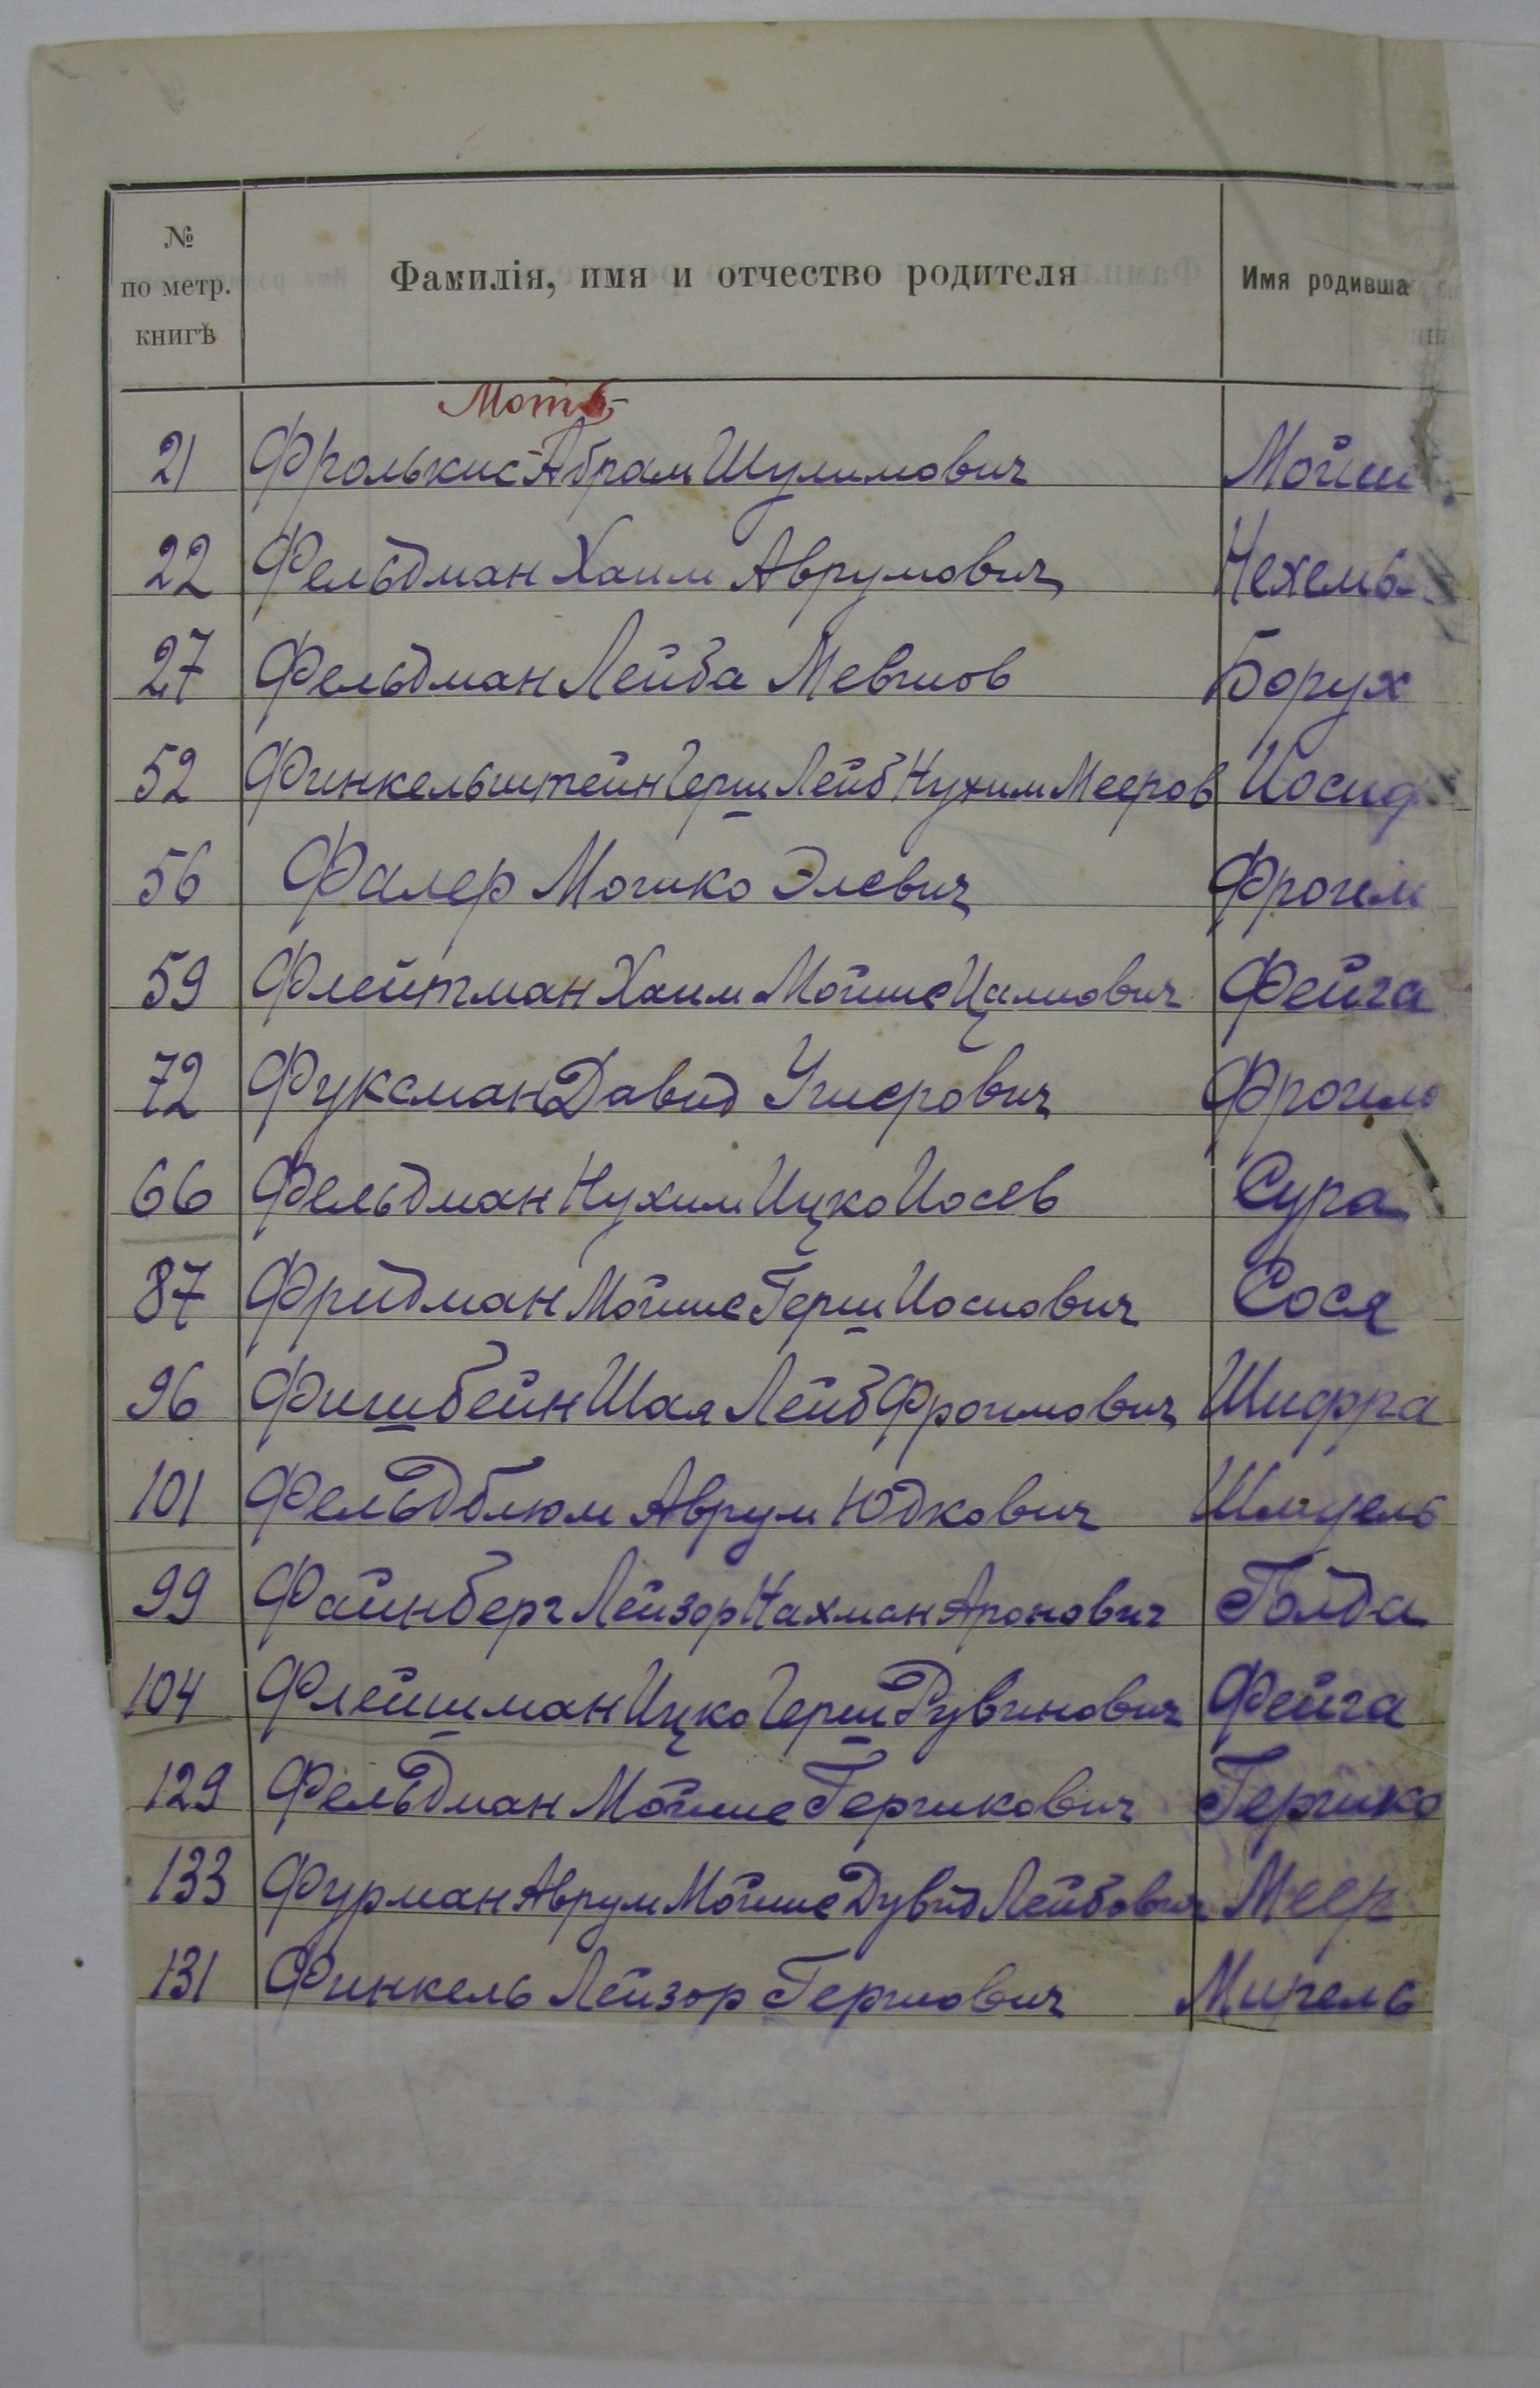 № по метр. книгѣ Фамилія, имя и отчество родителя Имя родивша
Моть
21 Фролькис Абрам Шулимович Мойш
22 Фельдман Хаим Аврумович Нехемь
27 Фельдман Лейба Мевшов Борух
52 Финкельштейн Герш Лейб Нухим Мееров Иосиф
56 Фалер Мошко Элевич Фроим
59 Флейтман Хаим Мойше Цалмович Фейга
72 Фуксман Давид Ушерович Фроим
66 Фельдман Нухим Ицко Иосев Сура
87 Фридман Мойше Герш Иосиович Сося
96 Фишбейн Шая Лейб Фроимович Шифра
101 Фельдблюм Аврум Юдкович Шмуель
99 Файнберг Лейзор Нахман Аронович Голда
104 Флейшман Ицко Герш Рувинович Фейга
129 Фельдман Мойше Гершкович Гершко
133 Фурман Аврум Мойше Дувид Лейбович Меер
131 Финкель Лейзор Гершович Мирель